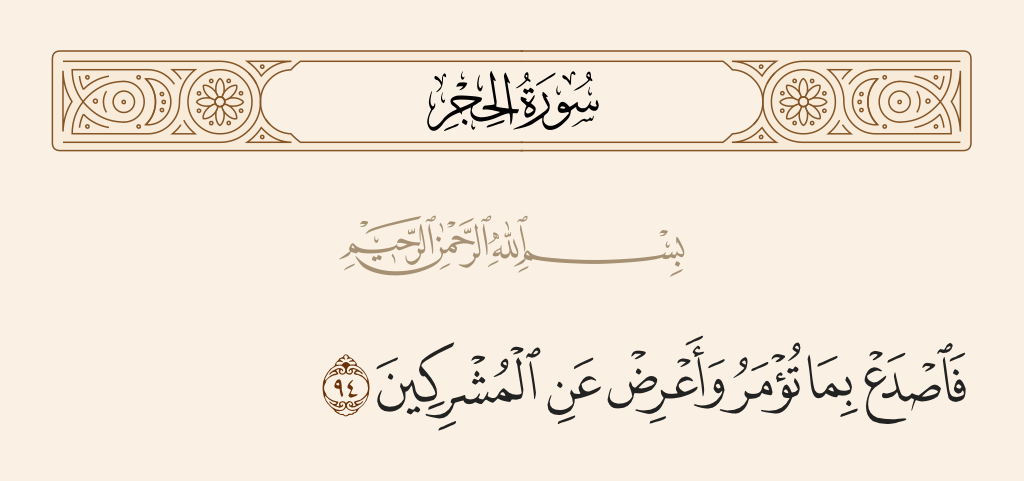 سُورَةُ الحِجْرِ
بِسْمِ ٱللَّهِ ٱلرَّحْمَٰنِ ٱلرَّحِيمِ
فَٱصْدَعْ بِمَا تُؤْمَرُ وَأَعْرِضْ عَنِ ٱلْمُشْرِكِينَ ٩٤